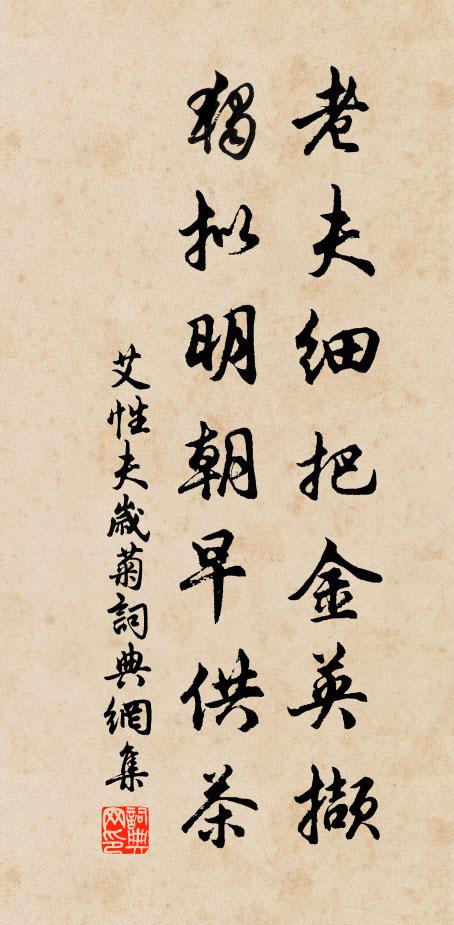 老夫細把金英擷
獨拟明朝早供茶
艾性夫歲菊詞典網集
詞典网印